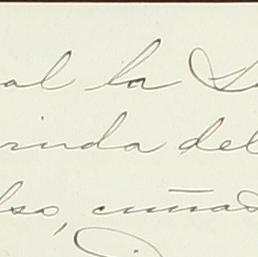 al la S
rinda del
lso, cuñad